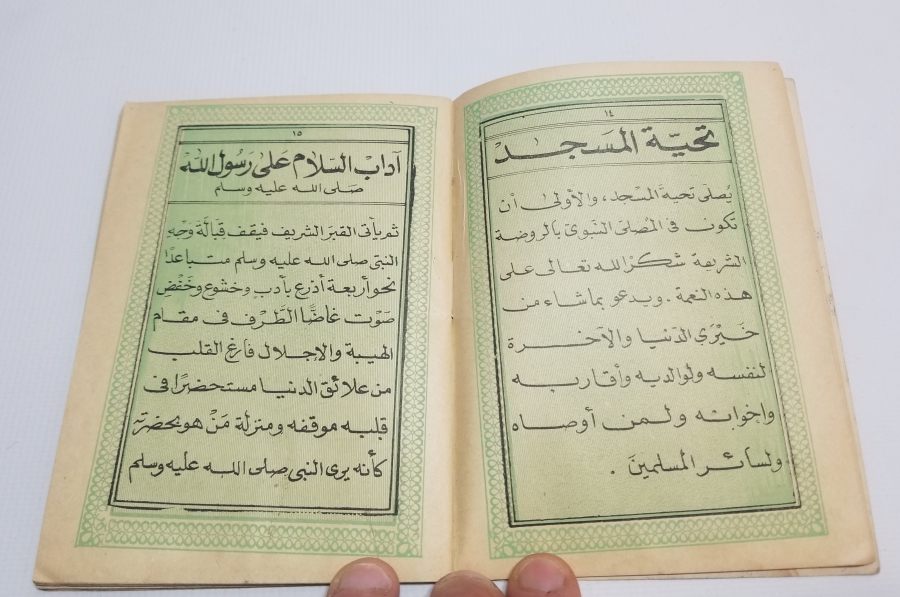 ١٤
تحيّة المَسجد
يُصلّى تحية المسْجد، والأولى أن
تكون فى المُصلّى النّبوىّ بالروضة
الشريفة شكرًا لله تعالى على
هذه النعمة . ويدعو بما شاء من
خَيْرَىِ الدّنيا والآخرة
لنفسه ولوالديه وأقاربه
وإخوانه ولمن أوصاه
ولسائر المسلمينَ .
١٥
آدابُ السّلام عَلى رَسُول الله
صَلى الله عليه وسَلم
ثم يأتى القبرَ الشريف فيقف قبَالَة وَجه
النبى صلى الله عليه وسلم متباعدًا
نحو أربعة أذرع بأدب وخشوع وخَفْضِ
صَوْت غاضًّا الطَّرف فى مقام
الهيبة والإجلال فارغ القلب
من علائق الدنيا مستحضرًا فى
قلبه موقفه ومنزلة مَنْ هو بحضرته
كأنه يرى النبى صلى الله عليه وسلم